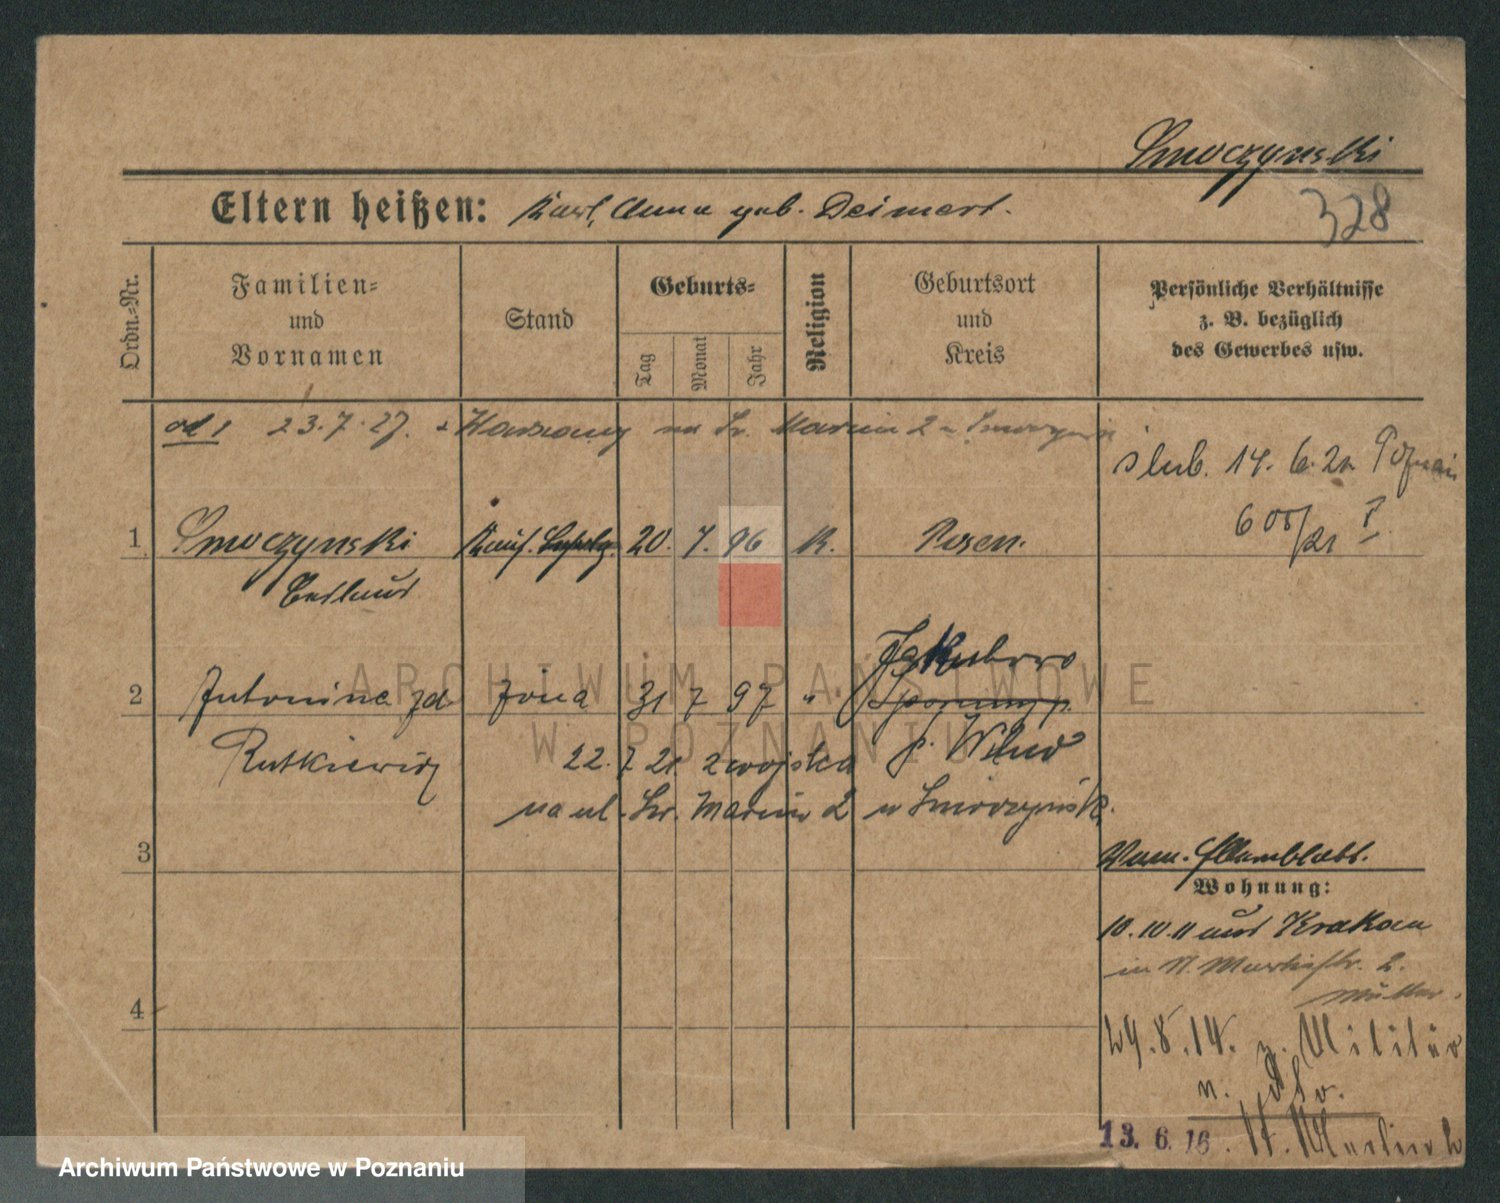 Smoczynski
Eltern heißen: Karl, Anna geb. Deimert.
328
Ordn.-Nr.
Familien-
und
Vornamen
Stand
Geburts-
Tag
Monat
Jahr
Religion
Geburtsort
und
Kreis
Persönliche Verhältnisse
z. B. bezüglich
des Gewerbes usw.
od 1 23.7.27. z Warszawy na Św. Marcin 2 u Smoczyński
ślub. 14. 6. 21. Poznań
605/21 I
1 Smoczynski Kauf. 20. 7. 96 K. Posen.
2 Antonina zd żona 31 7 97 "
Rutkiewicz
22. 7 21 z wojska
na ul. Św. Marcin 2 u Smoczyńsk.
3
Wohnung:
10.10.11 aus Krakau
in St. Martinstr. 2.
Müller.
4
29.8.14. z. Militär
13. 6. 16. St. Martinstr 2
ARCHIWUM PAŃSTWOWE
W POZNANIU
Archiwum Państwowe w Poznaniu